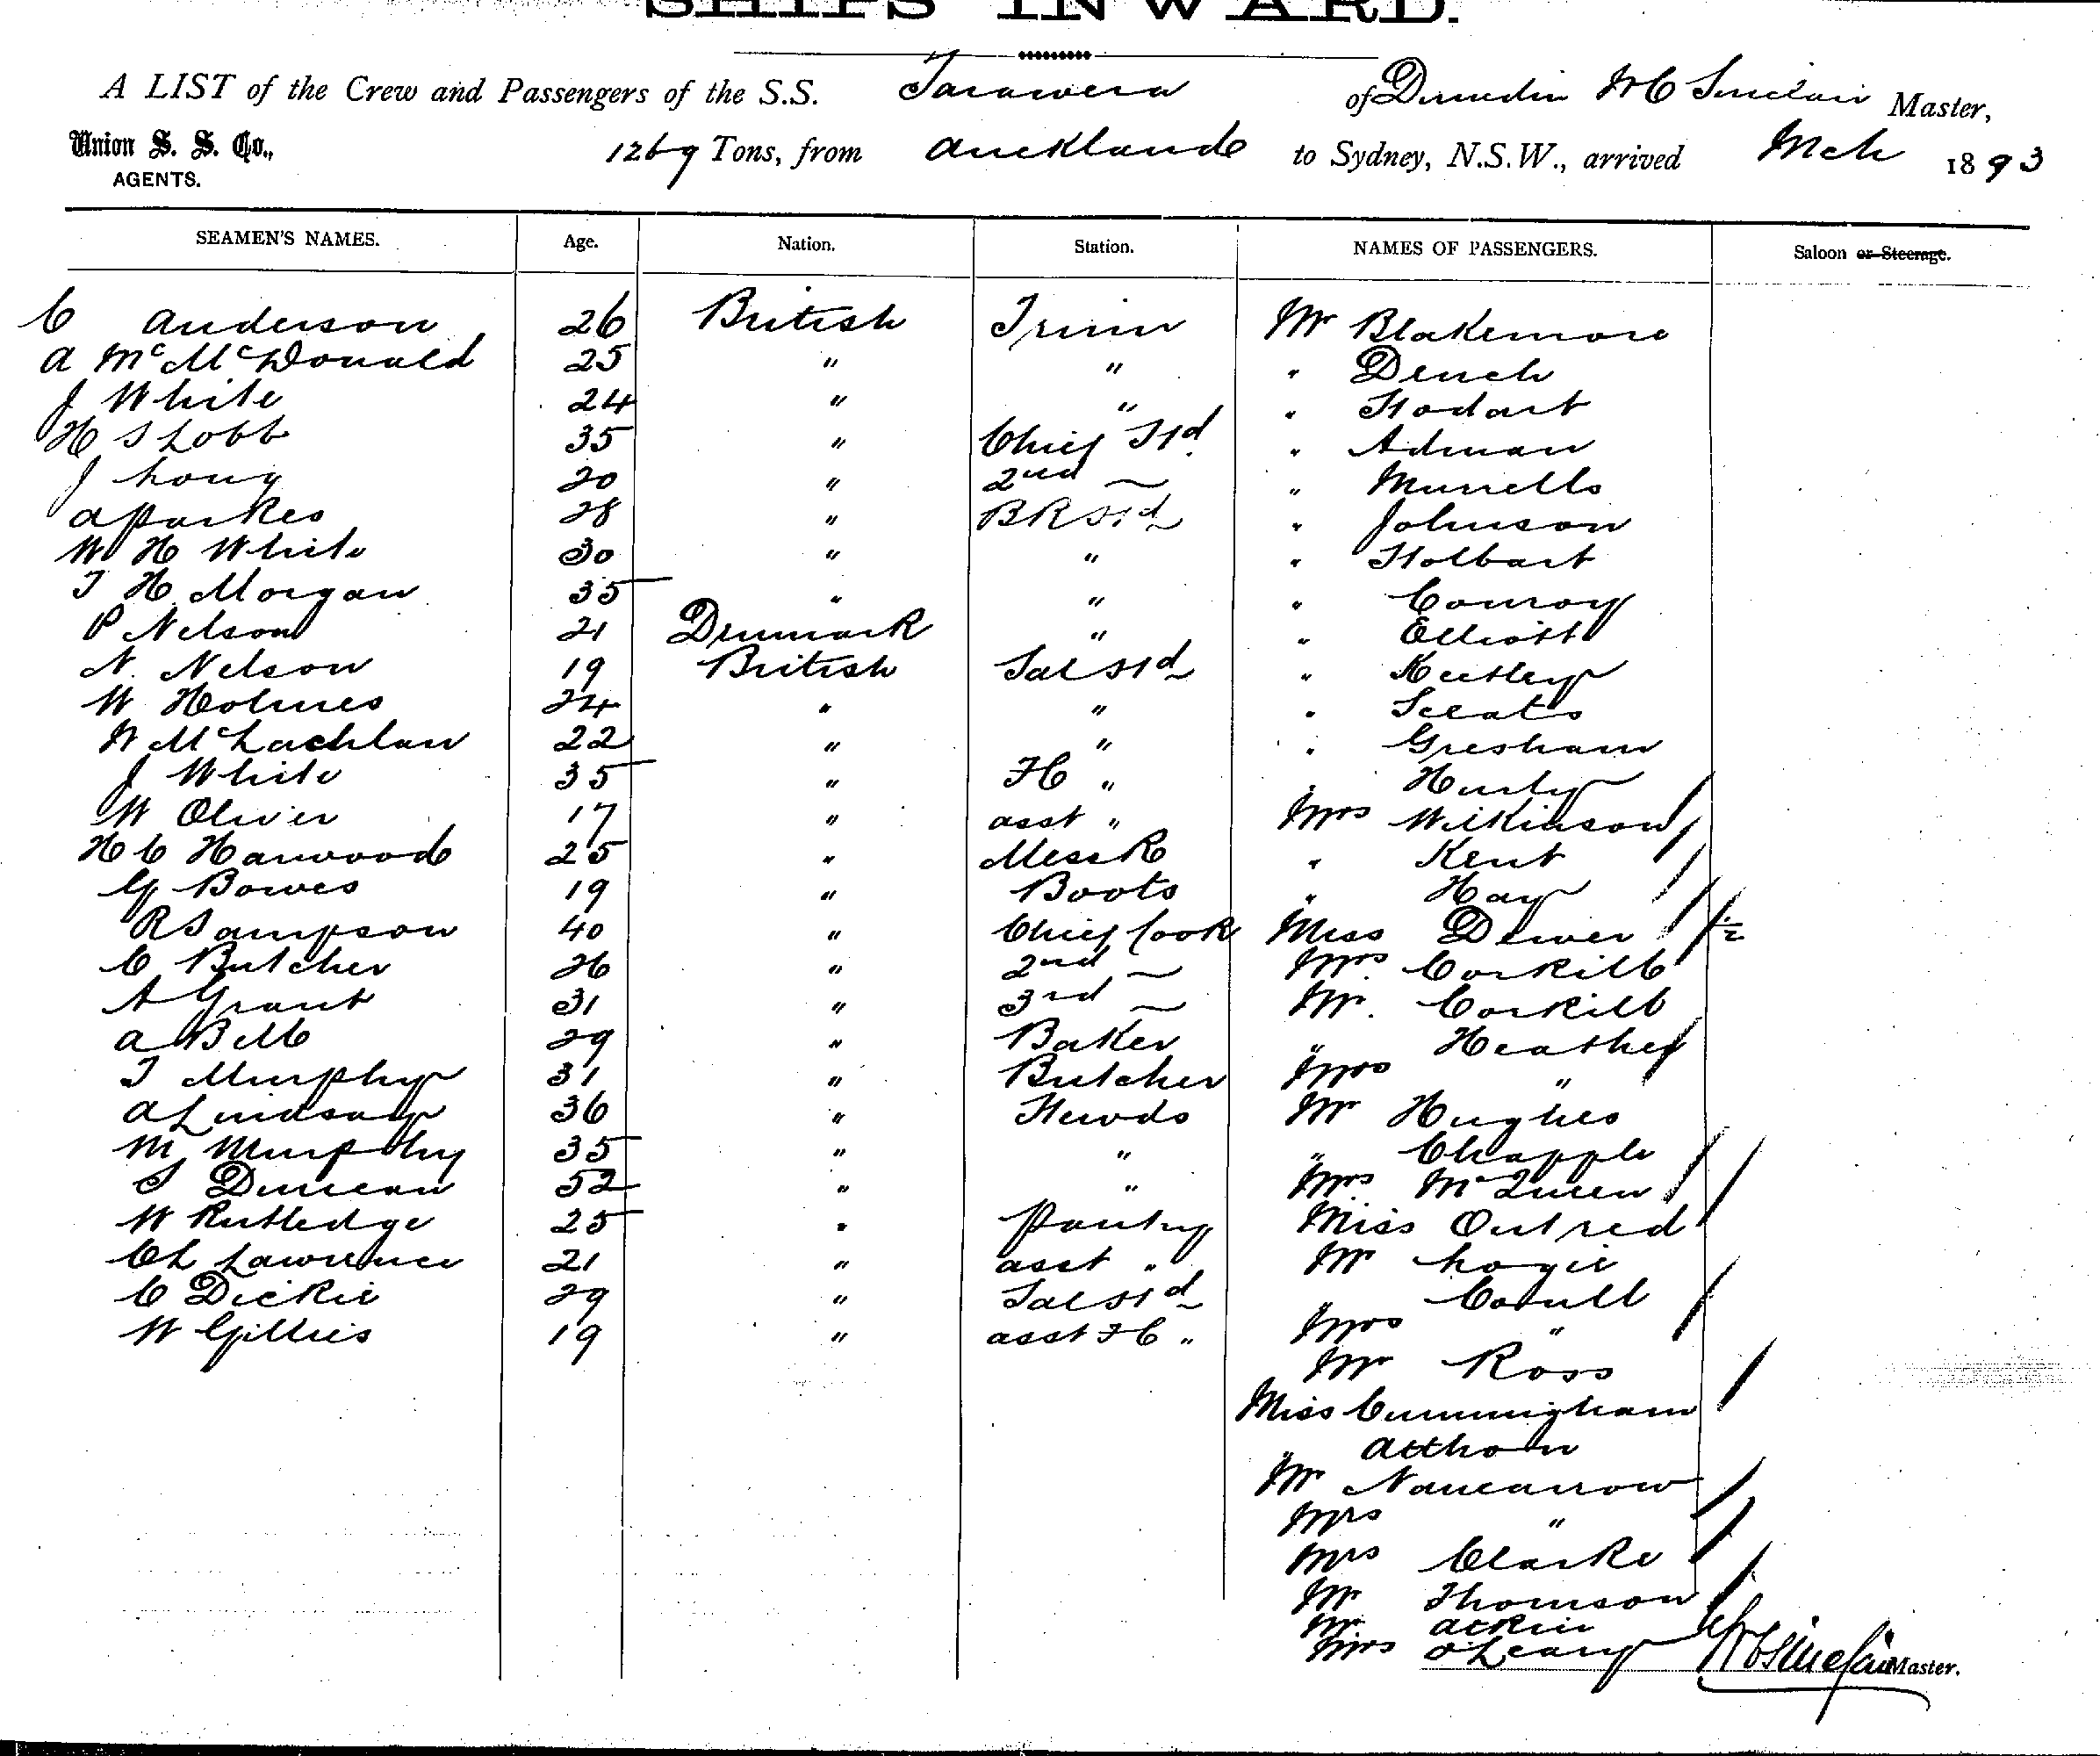 SHIPS INWARD.
A LIST of the Crew and Passengers of the S.S. Tarawera of Dunedin W C Sinclair Master,
Union S. S. Co., AGENTS. 1269 Tons, from Auckland to Sydney, N.S.W., arrived Mch 1893
SEAMEN'S NAMES. Age. Nation. Station. NAMES OF PASSENGERS. Saloon or Steerage.
C Anderson 26 British Trimr Mr Blakemore
A McMcDonald 25 " " " Dench
J White 24 " " " Stodart
H S Lobb 35 " Chief Std. " Adman
J Long 20 " 2nd ~ " Murrells
A Parkes 28 " BR Std " Johnson
W H White 30 " " " Stolbart
T H Morgan 35 " " " Conroy
P Nelson 21 Denmark " " Elliott
N. Nelson 19 British Sal Std " Keetley
W Holmes 24 " " " Scoats
W McLachlan 22 " " " Gresham
J White 35 " FC " " Hurly
W Oliver 17 " asst " Mrs Wilkinson
H C Harwood 25 " Mess R " Kent
G Bowes 19 " Boots " Hay
R Sampson 40 " Chief Cook Miss Dewer
C Butcher 26 " 2nd ~ Mrs. Corkill
A Grant 31 " 3rd ~ Mr. Corkill
A Bell 29 " Baker " Heather
T Murphy 31 " Butcher Mrs "
A Lindsay 36 " Stewds Mr Hughes
M Murphy 35 " " " Chapple
S Duncan 52 " " Mrs McQueen
W Rutledge 25 " Pantry Miss Outred
Ch Lawrence 21 " asst " Mr Logie
C Dickie 29 " Sal Std " Covell
W Gillies 19 " asst FC " Mrs "
Mr Ross
Miss Cunningham
" Atthow
Mr Nancarrow
Mrs "
Mrs Clarke
Mr Thomson
Mr Atkin
Mrs O'Leary W C Sinclair Master.